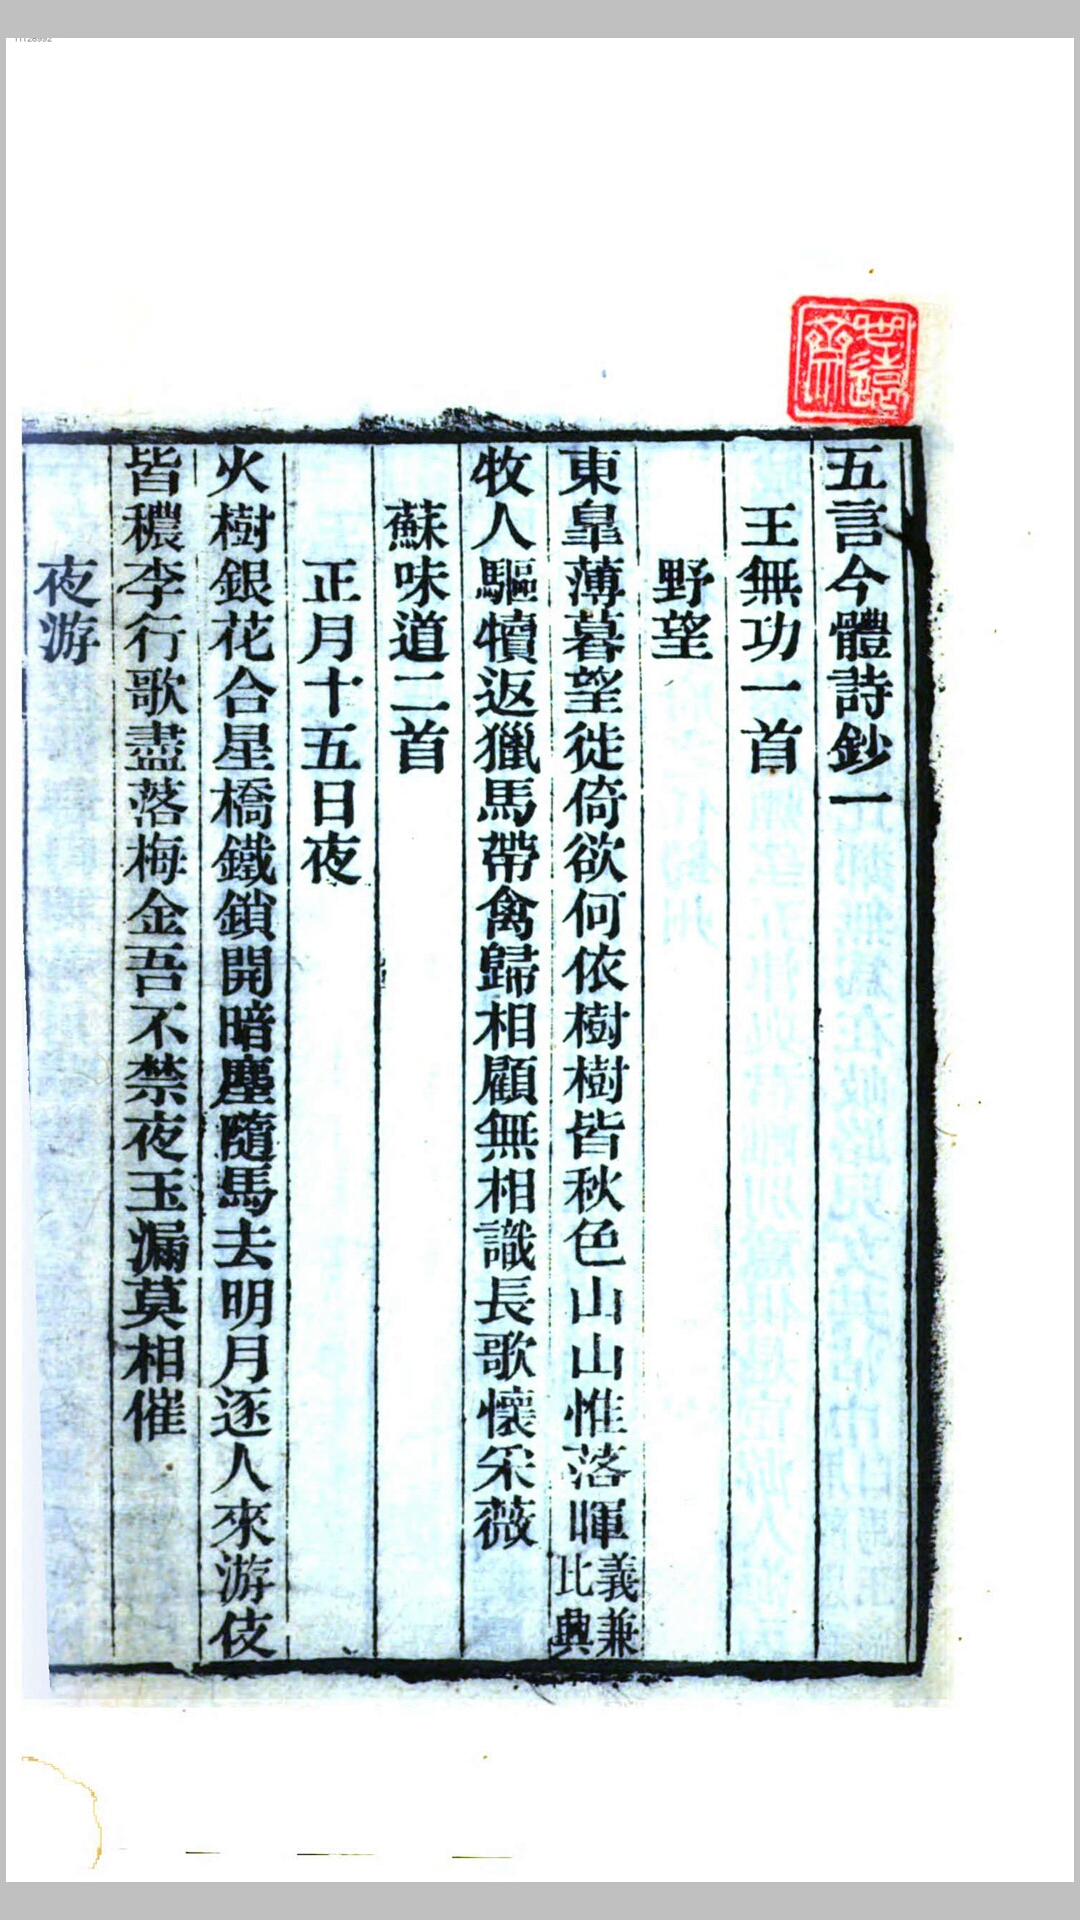 11128992
五言今體詩鈔一
王無功一首
野望
東皋薄暮望徙倚欲何依樹樹皆秋色山山惟落暉義兼比興
牧人驅犢返獵馬帶禽歸相顧無相識長歌懷采薇
蘇味道二首
正月十五日夜
火樹銀花合星橋鐵鎖開暗塵隨馬去明月逐人來游伎
皆穠李行歌盡落梅金吾不禁夜玉漏莫相催
夜游